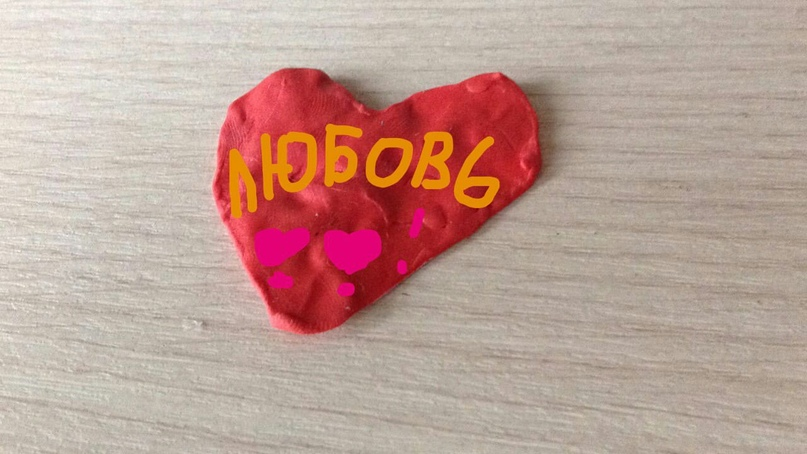 ЛЮБОВЬ
❣❣!